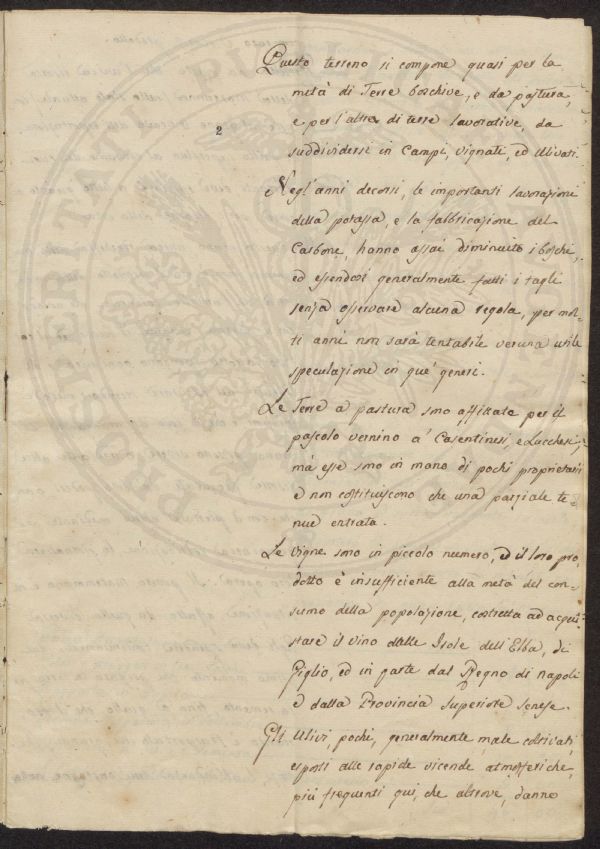 Questo terreno si compone quasi per la
metà di Terre boschive, e da pastura,
e per l'altra di terre lavorative, da
suddividersi in Campi, vignati, ed Ulivati.
2
Negl'anni decorsi, le importanti lavorazioni
della potassa, e la fabbricazione del
Carbone, hanno assai diminuito i boschi,
ed essendosi generalmente fatti i tagli
senza osservare alcuna regola, per mol-
ti anni non sarà tentabile veruna utile
speculazione in que' generi.
Le Terre a pastura sono affittate per il
pascolo vernino a' Casentinesi, e Lucchesi,
mà esse sono in mano di pochi proprietarii
e non costituiscono che una parziale te-
nue entrata.
Le vigne sono in piccolo numero, ed il loro pro-
dotto è insufficiente alla metà del con-
sumo della popolazione, costretta ad acqui-
stare il vino dalle Isole dell'Elba, di
Giglio, ed in parte dal Regno di napoli
e dalla Provincia Superiore senese.
Gli Ulivi, pochi, generalmente male coltivati,
esposti alle rapide vicende atmosferiche,
più frequenti qui, che altrove, danno
PROSPERITATI PUBLI